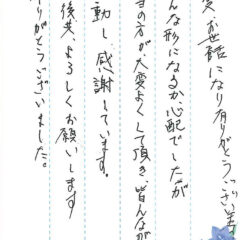 お世話になり有りがとうございま
んな形になるか心配でしたが
の方が大変よくして頂き、皆んなが
動し、感謝しています。
後共、よろしくお願いします
りがとうございました。